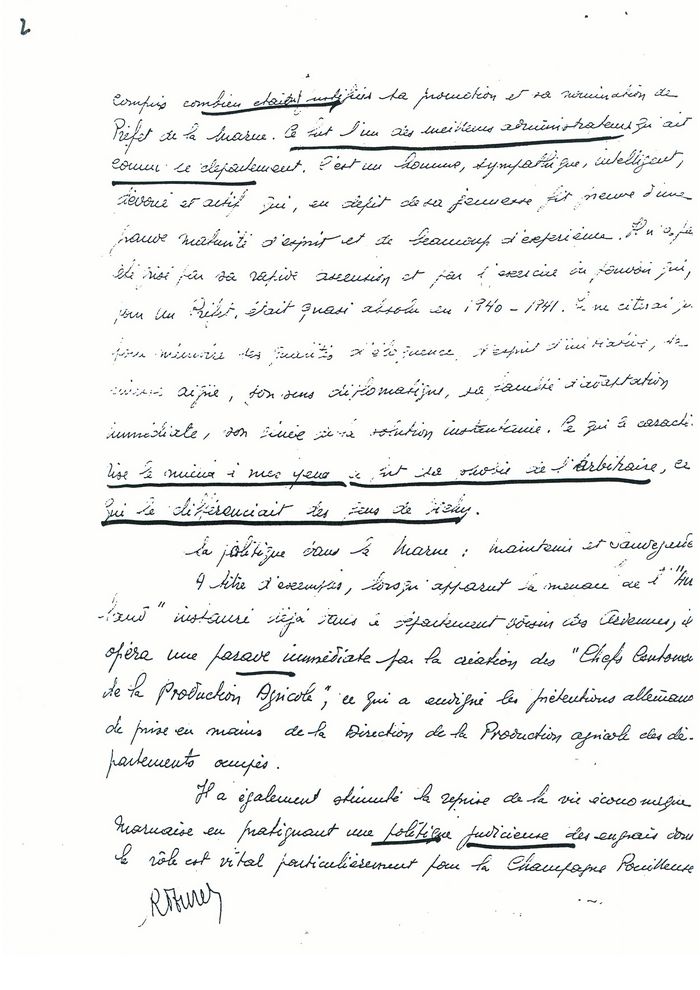 2
compris combien étaient justifiées sa promotion et sa nomination de
Préfet de la Marne. Ce fut l'un des meilleurs administrateurs qu'ait
connu ce département. C'est un homme, sympathique, intelligent,
dévoué et actif qui, en dépit de sa jeunesse fit preuve d'une
grande maturité d'esprit et de beaucoup d'expérience. Il n'a pas
été grisé par sa rapide ascension et par l'exercice du pouvoir qui,
pour un Préfet, était quasi absolu en 1940 - 1941. Je ne citerai
pour mémoire ses qualités d'éloquence, d'esprit d'initiative, sa
aigüe, son sens diplomatique, sa faculté d'adaptation
immédiate, son de la solution instantanée. Ce qui le caracté-
rise le mieux à mes yeux ce fut sa phobie de l'arbitraire, ce
qui le différenciait des gens de Vichy.
La politique dans la Marne : maintenir et sauvegarder
A titre d'exemples, lorsqu'apparut la menace de l'
land" instauré déjà dans le département voisin des Ardennes, il
opéra une parade immédiate par la création des "Chefs Cantonaux
de la Production Agricole", ce qui a endigué les prétentions allemandes
de prise en mains de la Direction de la Production agricole des dé-
partements occupés.
Il a également stimulé la reprise de la vie économique
Marnaise en pratiquant une politique judicieuse des engrais dont
le rôle est vital particulièrement pour la Champagne Pouilleuse